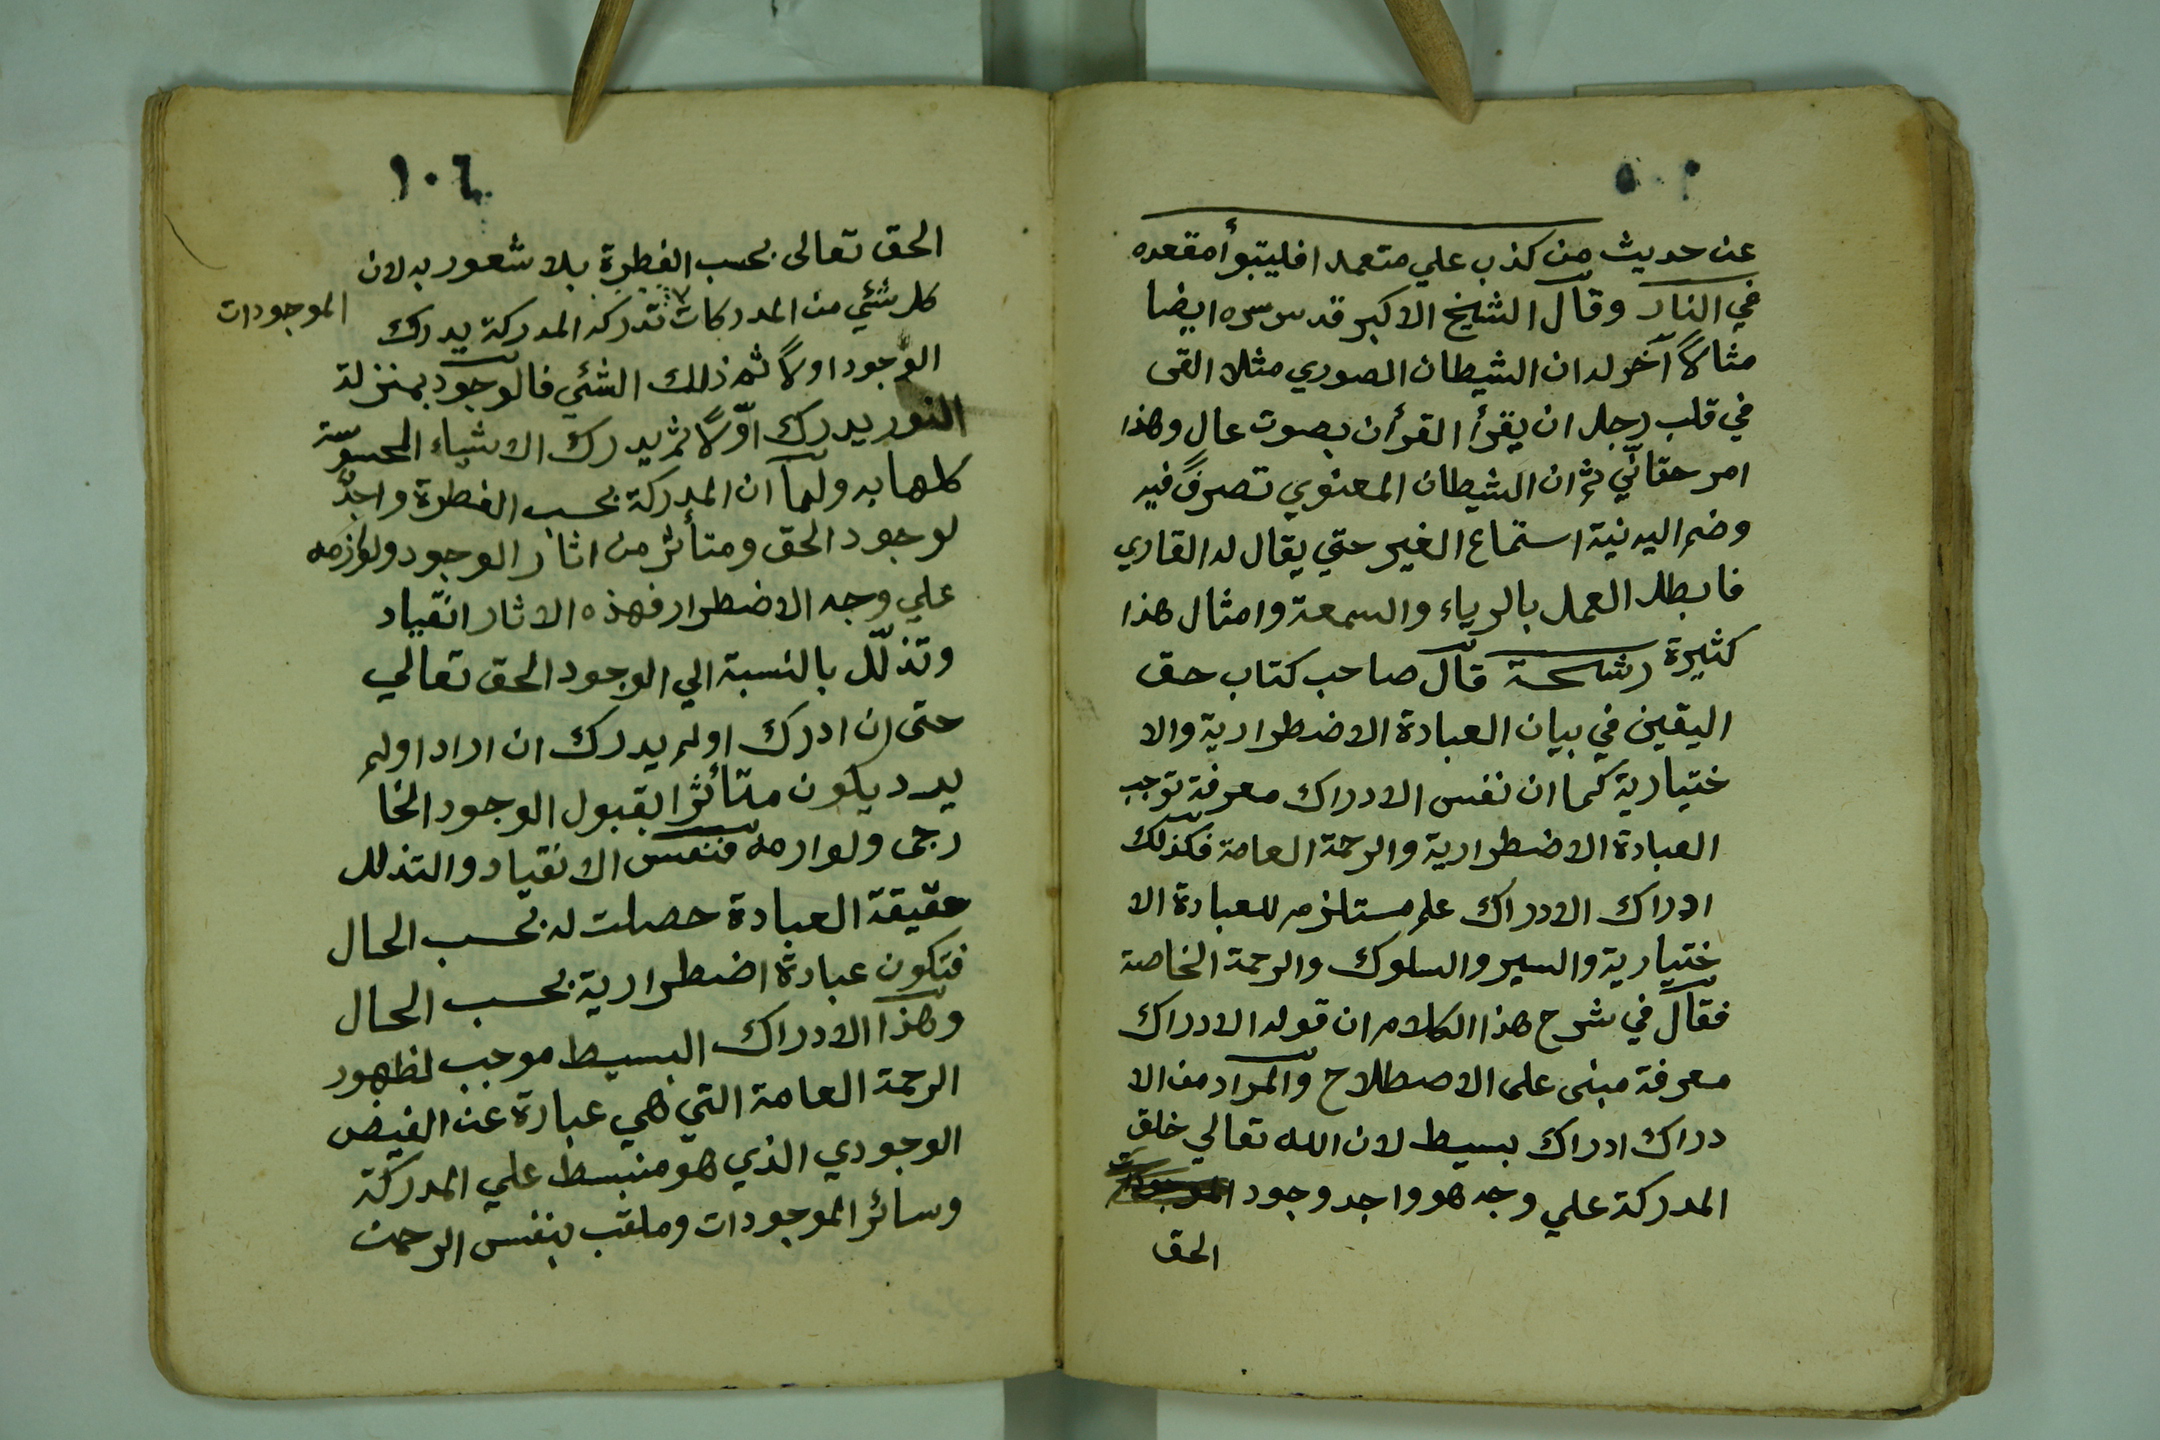 عن حديث من كذب علي متعمدا فليتبوأ مقعده
في النار وقال الشيخ الاكبر قدس سره ايضا
مثالاً آخر له ان الشيطان الصوري مثلا القى
في قلب رجل ان يقرأ القرأن بصوت عال وهذا
امر حقاني ثم ان الشيطان المعنوي تصرف فيه
وضم اليه نية استماع الغير حتي يقال له القاري
فابطل العمل بالرياء والسمعة وامثال هذا
كثيرة رشحة قال صاحب كتاب حق
اليقين في بيان العبادة الاضطرارية والا
ختيارية كما ان نفس الادراك معرفة توجب
العبادة الاضطرارية والرحمة العامة فكذلك
ادراك الادراك علم مستلزم للعبادة الا
ختيارية والسير والسلوك والرحمة الخاصة
فقال في شرح هذا الكلام ان قوله الادراك
معرفة مبنى على الاصطلاح والمراد من الا
دراك ادراك بسيط لان الله تعالي خلق
المدركة علي وجه هو واجد وجود
الحق
١٠٦
الحق تعالى بحسب الفطرة بلا شعور به لان
كل شئي من المدركات تدركه المدركة يدرك
الموجودات
الوجود اولاً ثم ذلك الشئي فالوجود بمنزلة
النور يدرك اوّلاً ثم يدرك الاشياء المحسوسة
كلها به ولما ان المدركة بحسب الفطرة واجدٌ
لوجود الحق ومتأثر من اثار الوجود ولوازمه
علي وجه الاضطرار فهذه الاثار انقياد
وتذلّل بالنسبة الي الوجود الحق تعالي
حتى ان ادرك اولم يدرك ان اراد اولم
يرد يكون متأثرا لقبول الوجود الخا
رجى ولوازمه فنفس الانقياد والتذلل
حقيقة العبادة حصلت له بحسب الحال
فتكون عبادة اضطرارية بحسب الحال
وهذا الادراك البسيط موجب لظهور
الرحمة العامة التي هي عبارة عن الفيض
الوجودي الذي هو منبسط علي المدركة
وسائر الموجودات وملقب بنفس الرحمن